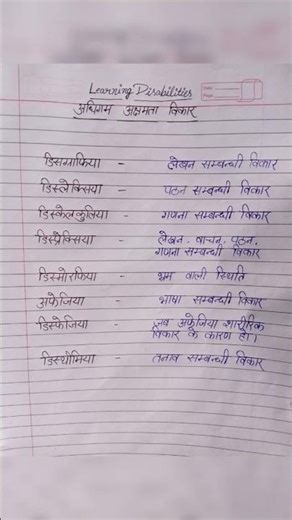 Learning Disabilities
अधिगम अक्षमता विकार
डिसग्राफिया - लेखन सम्बन्धी विकार
डिस्लेक्सिया - पठन सम्बन्धी विकार
डिस्केलकुलिया - गणना सम्बन्धी विकार
डिस्प्रैक्सिया - लेखन, वाचन, पठन,
गणना सम्बन्धी विकार
डिस्मोरफिया - भ्रम वाली स्थिति
अफेजिया - भाषा सम्बन्धी विकार
डिस्फेजिया - जब अफेजिया शारीरिक
विकार के कारण हो।
डिस्थीमिया - तनाव सम्बन्धी विकार